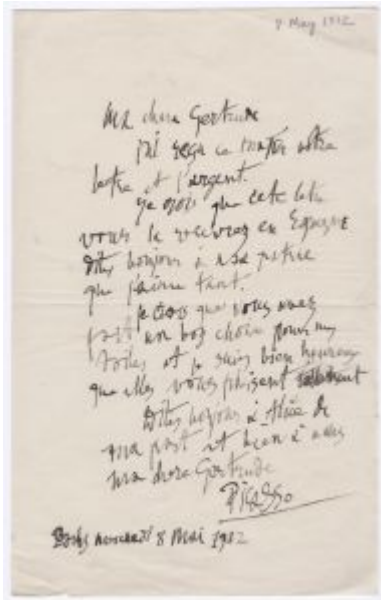 8 May 1912
Ma chere Gertrude
j'ai reçu ce matin votre
lettre et l'argent.
je crois que cete letre
vous la recevrez en Espagne
dites bonjour à ma patrie
que j'aime tant.
je crois que vous avez
fait un bon choix pour mes
toiles et je suis bien heureux
que elles vous plaisent
Dites bonjour à Alice de
ma part et bien à vous
ma chere Gertrude
Picasso
mercredi 8 Mai 1912